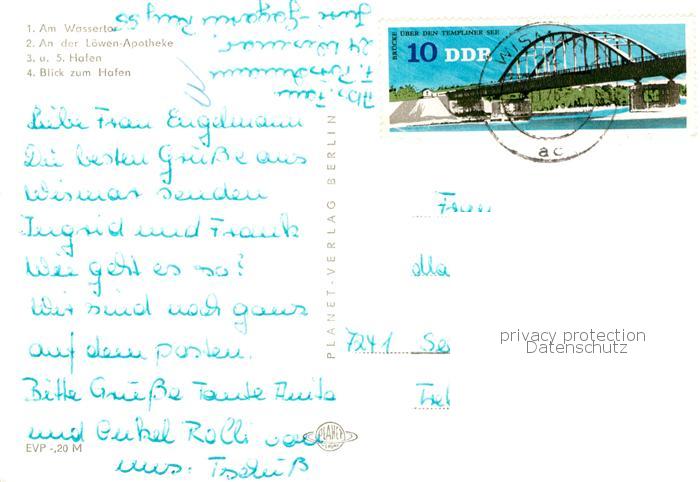 1. Am Wassertor
2. An der Löwen-Apotheke
3. u. 5. Hafen
4. Blick zum Hafen
Abs. Fam.
24 Wismar
Juri-Gagarin Ring 55
Liebe Frau Engelmann
Die besten Grüße aus
Wismar senden
Ingrid und Frank
Wie geht es so?
Wir sind noch ganz
auf dem posten.
Bitte Grüße Tante Anita
und Onkel Rolli von
uns. Tschüß
EVP -,20 M
PLANET-VERLAG BERLIN
PLANET
BRÜCKE ÜBER DEN TEMPLINER SEE
10 DDR
WISMAR
ac
Frau
7241
privacy protection
Datenschutz